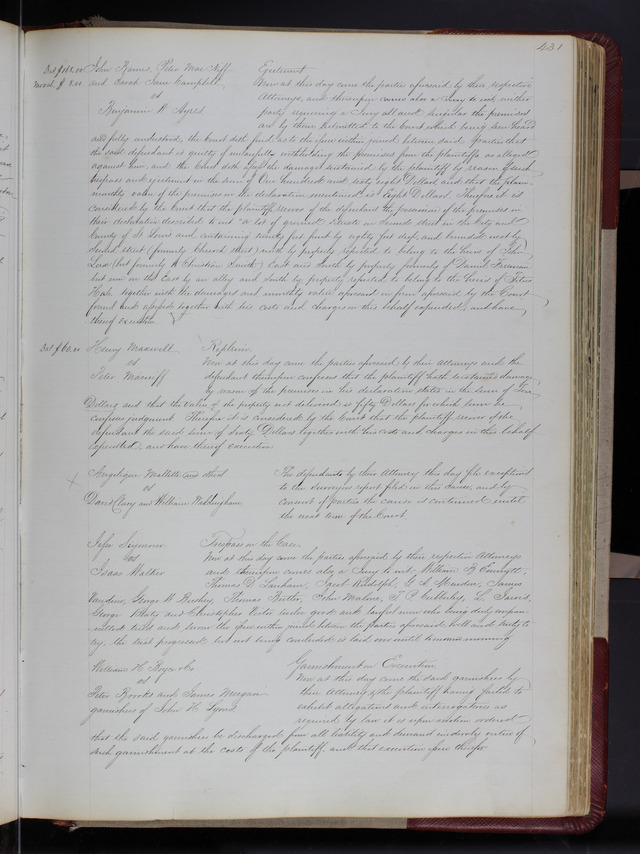 431
Det $168.00 John Kames, Peter Mac Niff Ejectment
Month $8.00 and Sarah Jane Campbell, Now at this day come the parties aforesaid by their respective
vs Attorneys, and thereupon comes also a Jury to wit, neither
Benjamin W Ayres party requiring a Jury all and singular the premises
are by them submitted to the Court which being seen heard
and fully understood, the Court doth find as to the issue within joined between said parties that
the said defendant is guilty of unlawfully withholding the premises from the plaintiffs as alleged
against him, and the Court doth find the damages sustained by the plaintiff by reason of such
trespass and ejectment in the sum of One hundred and sixty eight Dollars, and that the
monthly value of the premises in the declaration mentioned is Eight Dollars. Therefore it is
considered by the Court that the plaintiffs recover of the defendant the possession of the premises in
their declaration described to wit "a lot of ground situate on Second street in the city and
County of St Louis and containing feet front by eighty feet deep, and bounded west by
Second street (formerly Church street) north by property reputed to belong to the heirs of John
(but formerly to Christian Smith) East and South by property formerly of Daniel Freeman
but now on the East by an alley and South by property reputed to belong to the heirs of Peter
together with the damages and monthly value aforesaid in form aforesaid by the Court
found and assessed together with his costs and charges in this behalf expended, and have
thereof execution
Det $60.00 Henry Maxwell Replevin.
vs Now at this day come the parties aforesaid by their Attorneys and the
Peter Macniff defendant thereupon confesses that the plaintiff hath sustained damage
by reason of the premises in his declaration stated in the sum of Ten
Dollars and that the value of the property not delivered is fifty Dollars for which sum he
confesses judgment. Therefore it is considered by the Court that the plaintiff recover of the
defendant the said sum of Sixty Dollars together with his costs and charges in this behalf
expended, and have thereof execution
Angelique Mallette and others The defendants by their Attorney this day file exceptions
vs to the surveyors report filed in this cause, and by
David Clary and William Waddingham consent of parties the cause is continued until
the next term of the Court
Jefse Seymour Trespass on the Case.
vs Now at this day come the parties aforesaid by their respective Attorneys
Isaac Walker and thereupon comes also a Jury to wit, William B
Thomas D. Lanham, Jacob Rudolph, G. A. Marsden, James
George W Thomas Butler, John Malone, T. P. L.
George and Christopher twelve good and lawful men who being duly empan-
nelled tried and sworn the issue within joined between the parties aforesaid well and truly to
try, the trial progressed but not being concluded is laid over until tomorrow morning
William H. Boyer & Co Garnishment on Execution
vs Now at this day come the said garnishees by
Peter Brooks and James Morgan their Attorney, & the plaintiff having failed to
garnishees of John H. Lynd exhibit allegations and interrogatories as
required by law it is upon motion ordered
that the said garnishees be discharged from all liability and demand
such garnishment at the costs of the plaintiff, and that execution issue therefor